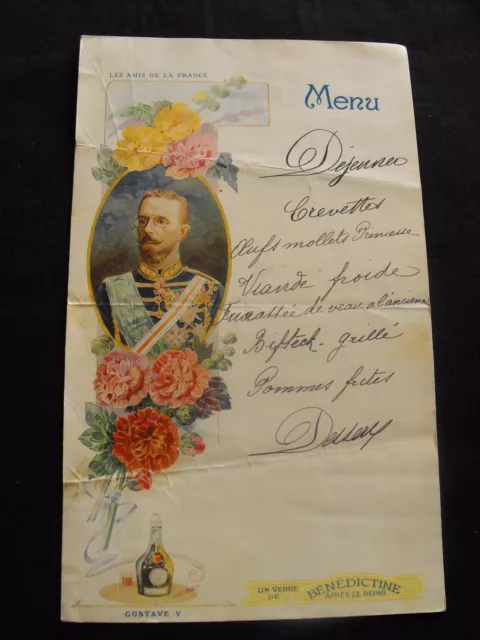 LES AMIS DE LA FRANCE
Menu
Déjeuner
Crevettes
Œufs mollets Princesse
Viande froide
Fricassée de veau a l'ancienne
Bifteck grillé
Pommes frites
Dessert
UN VERRE DE BÉNÉDICTINE APRÈS LE REPAS
GUSTAVE V